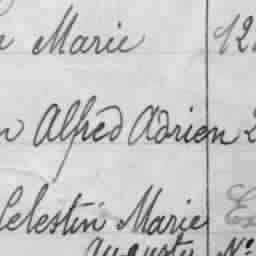 Marie 12
Alfred Adrien 2
Celestin Marie
Auguste No